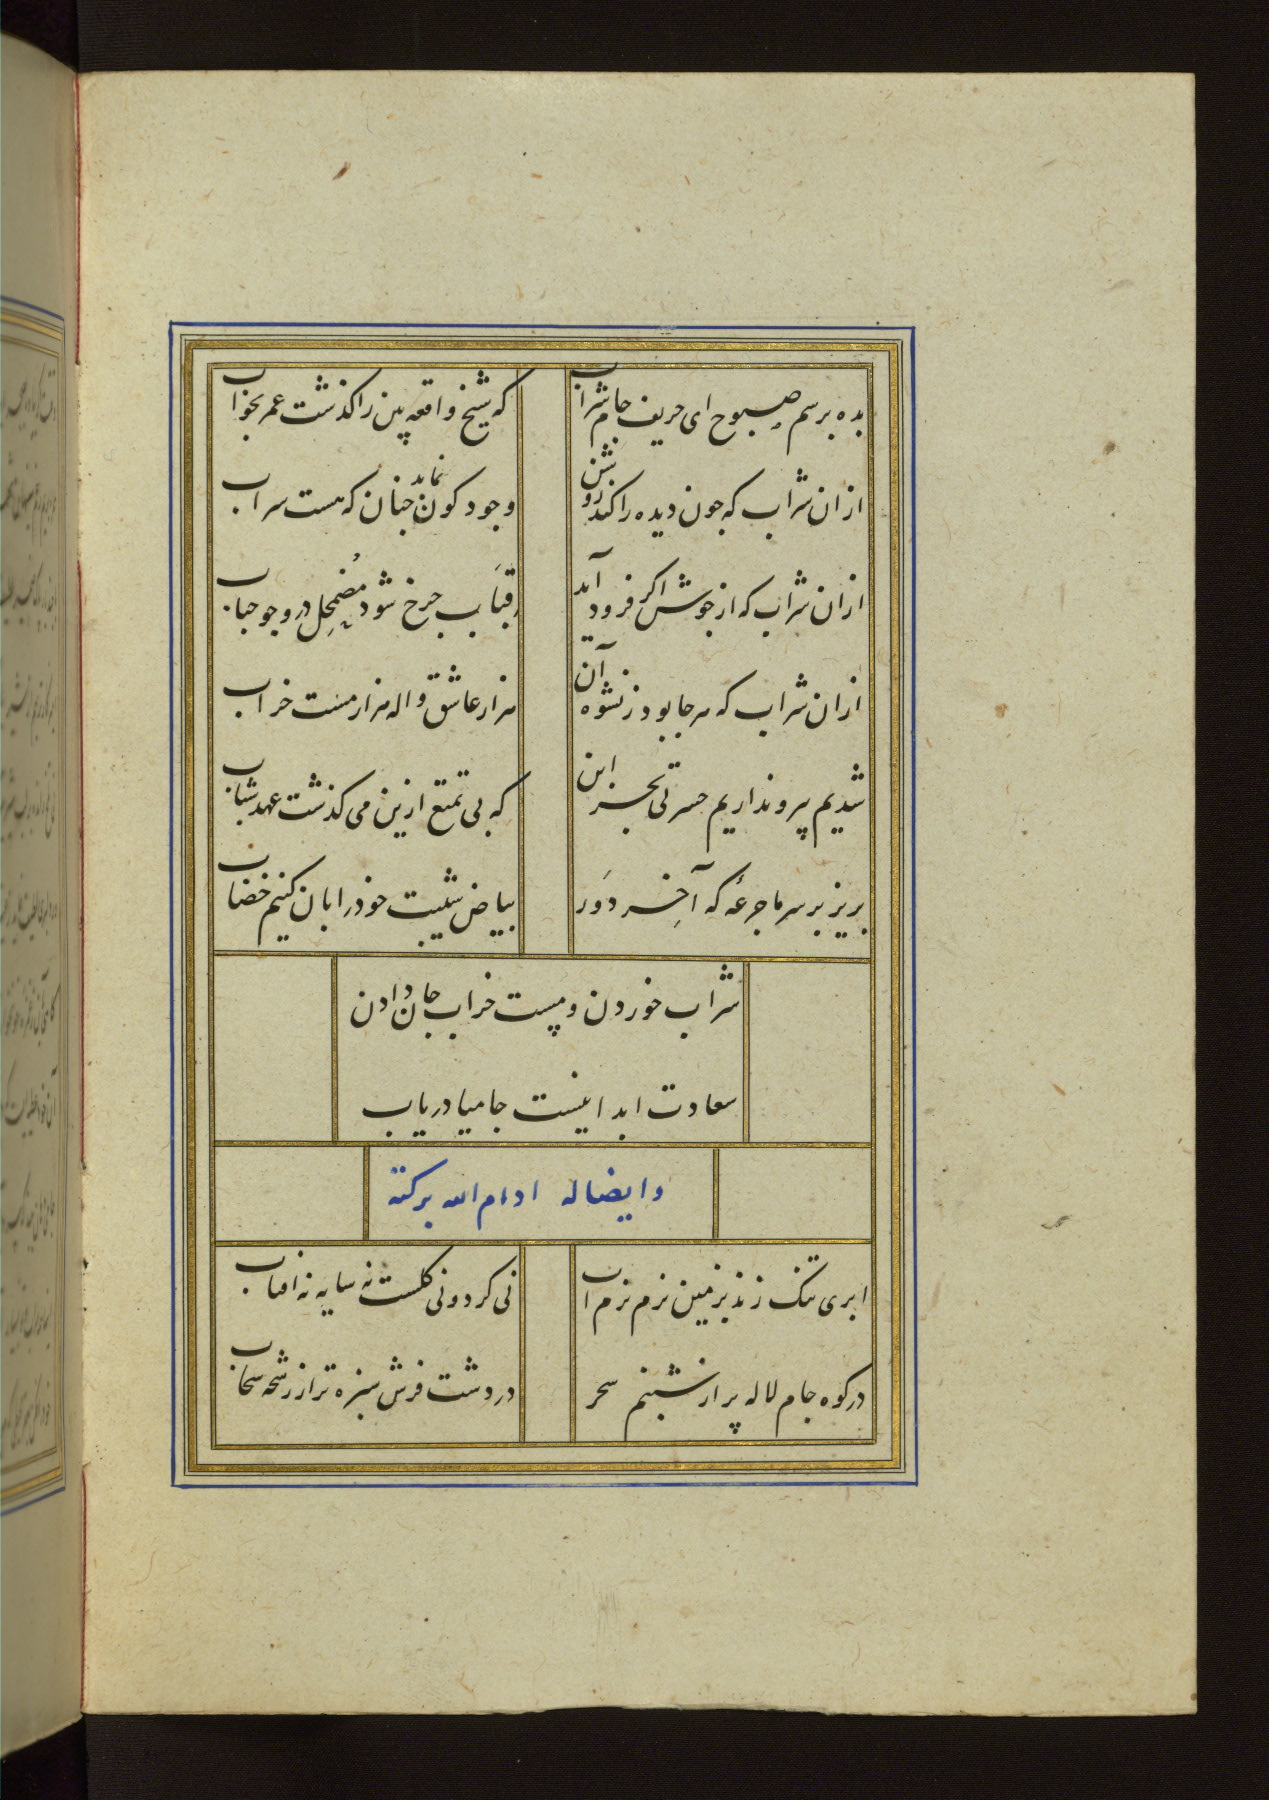 بده برسم صبوح ای حریف جام شراب
که شیخ واقعه بین را کذشت عمر بخواب
ازان شراب که جون دیده را کند روشن
وجود کون نماید جنان که هست سراب
ازان شراب که از جوش اکر فرود آید
قباب جرخ شود مُضمحِل درو جو حباب
ازان شراب که هر جا بود ز نشوه آن
هزار عاشق و اله هزار مست خراب
شدیم پیر و نداریم حسرتی بجز این
که بی تمتع ازین می کذشت عهد شباب
بریز بر سر ما جرعهٔ که آخِر دَور
بیاض شیبت خود را بان کنیم خضاب
شراب خوردن و مست خراب جان دادن
سعادت ابد اینست جامیا دریاب
وایضا له ادام الله برکته
ابری تنک زند بزمین نزم نزم اب
نی کرد و نی کلست نه سایه نه افتاب
در کوه جام لاله پر از شبنم سحر
در دشت فرش سبزه تر از رشحه سحاب